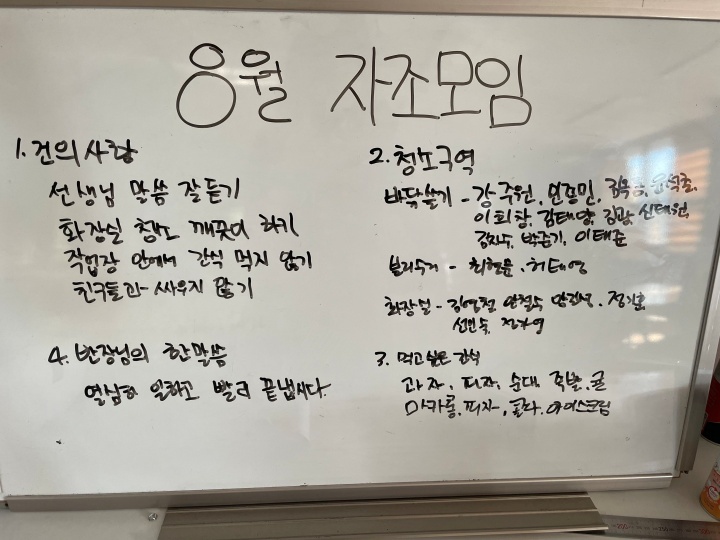 응월 자조모임
1. 건의사항
선생님 말씀 잘듣기
화장실 청소 깨끗이 하기
작업장 안에서 간식 먹지 않기
친구들과 싸우지 않기
4. 반장님의 한말씀
열심히 일하고 빨리 끝냅시다.
2. 청소구역
바닥쓸기 - 강주원, 윤석준,
이희창, 김태양, 김광, 신태원,
박금기, 이태준
분리수거 - 최현윤, 허태영
화장실 - 김연철 안철수
3. 먹고싶은 간식
과자, 피자, 순대, 족발, 귤
마카롱, 피자, 콜라, 아이스크림